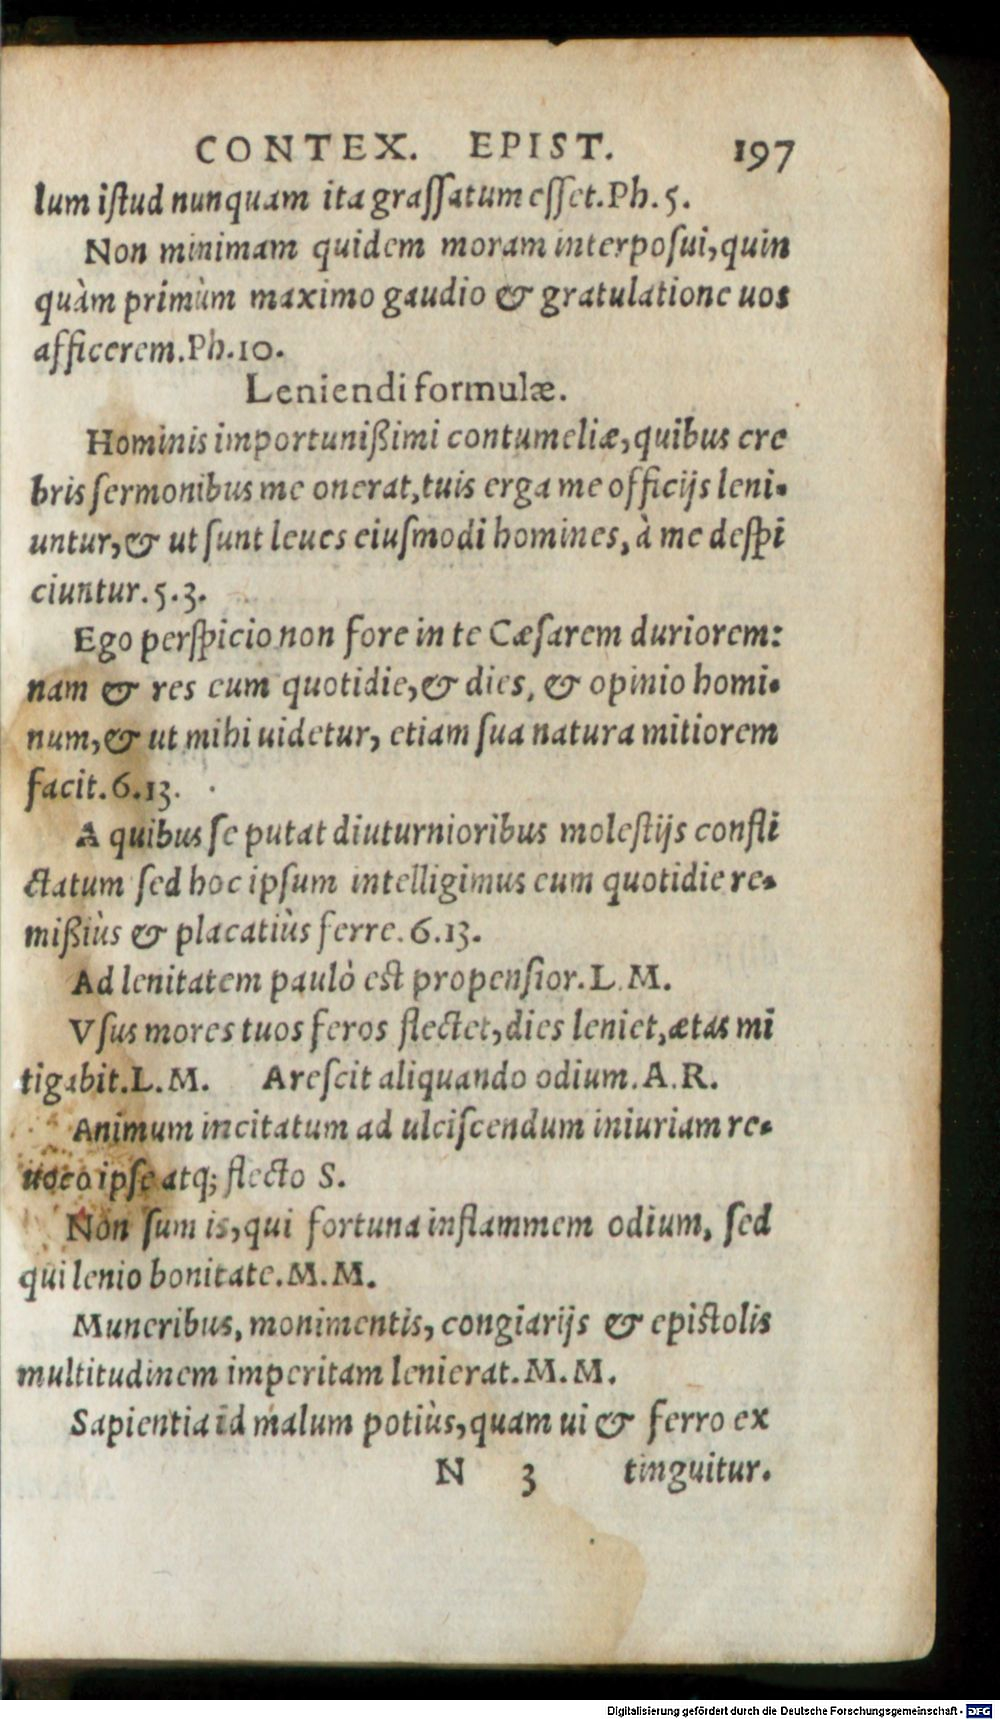 CONTEX. EPIST. 197
lum iſtud nunquam ita graſſatum eſſet. Ph. 5.
Non minimam quidem moram interpoſui, quin
quàm primùm maximo gaudio & gratulatione uos
afficerem. Ph. 10.
Leniendi formulæ.
Hominis importunißimi contumeliæ, quibus cre
bris ſermonibus me onerat, tuis erga me officijs leni-
untur, & ut ſunt leues eiuſmodi homines, à me deſpi
ciuntur. 5. 3.
Ego perſpicio non fore in te Cæſarem duriorem:
nam & res eum quotidie, & dies, & opinio homi-
num, & ut mihi uidetur, etiam ſua natura mitiorem
facit. 6. 13.
A quibus ſe putat diuturnioribus moleſtijs confli
ctatum ſed hoc ipſum intelligimus eum quotidie re-
mißiùs & placatiùs ferre. 6. 13.
Ad lenitatem paulò eſt propenſior. L. M.
Vſus mores tuos feros flectet, dies leniet, ætas mi
tigabit. L. M. Areſcit aliquando odium. A. R.
Animum incitatum ad ulciſcendum iniuriam re-
uoco ipſe atq; flecto S.
Non ſum is, qui fortuna inflammem odium, ſed
qui lenio bonitate. M. M.
Muneribus, monimentis, congiarijs & epiſtolis
multitudinem imperitam lenierat. M. M.
Sapientia id malum potiùs, quam ui & ferro ex
N 3 tinguitur.
Digitalisierung gefördert durch die Deutsche Forschungsgemeinschaft - DFG